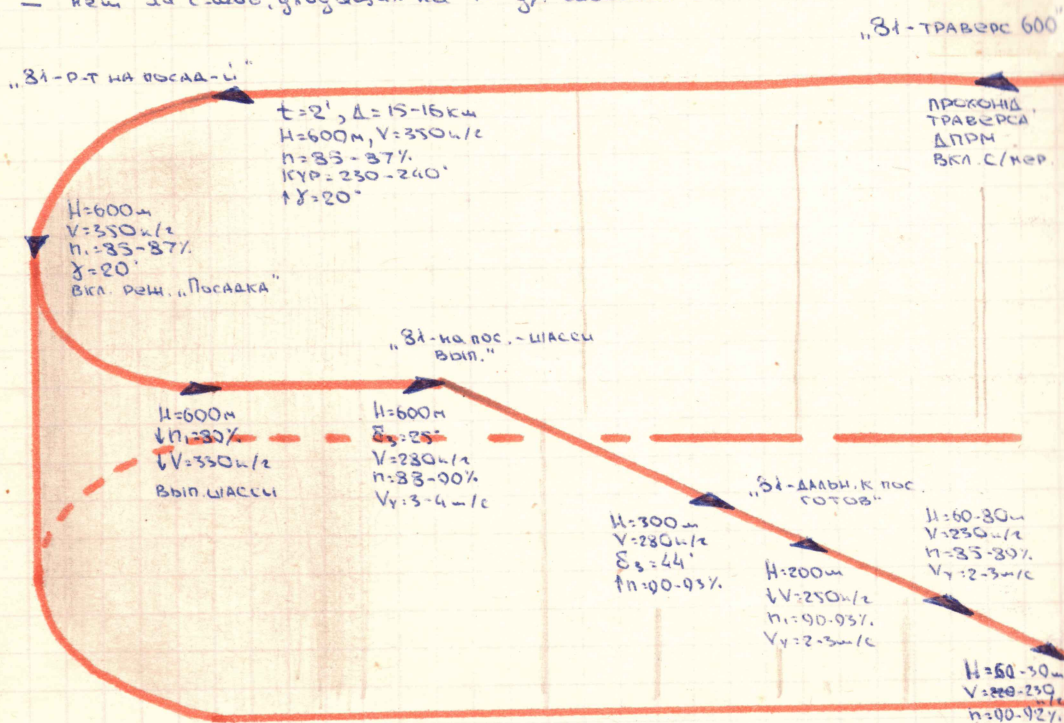 „81-ТРАВЕРС 600"
„81-Р-Т НА ПОСАД-Й"
t=2', Δ=15-16км
H=600м, V=350к/г
n=85-87%
КУР=230-240°
↑γ=20°
ПРОХОЖД.
ТРАВЕРСА
ДПРМ
ВКЛ. С/МЕР
H=600м
V=350к/г
n₁=85-87%
γ=20°
ВКЛ. РЕЖ. „ПОСАДКА"
„81-на пос.-ШАССИ
ВЫП."
H=600м
↓n₁=80%
↓V=330к/г
ВЫП. ШАССИ
H=600м
Ɛ₃=25°
V=280к/г
n=88-90%
Vy=3-4м/с
„81-ДАЛЬН. К ПОС.
ГОТОВ"
H=300м
V=280к/г
Ɛ₃=44°
↑n=90-93%
H=200м
↓V=250к/г
n₁=90-93%
Vy=2-3м/с
H=60-80м
V=230к/г
n=85-89%
Vy=2-3м/с
H=60-30м
V=220-230
n=90-92%